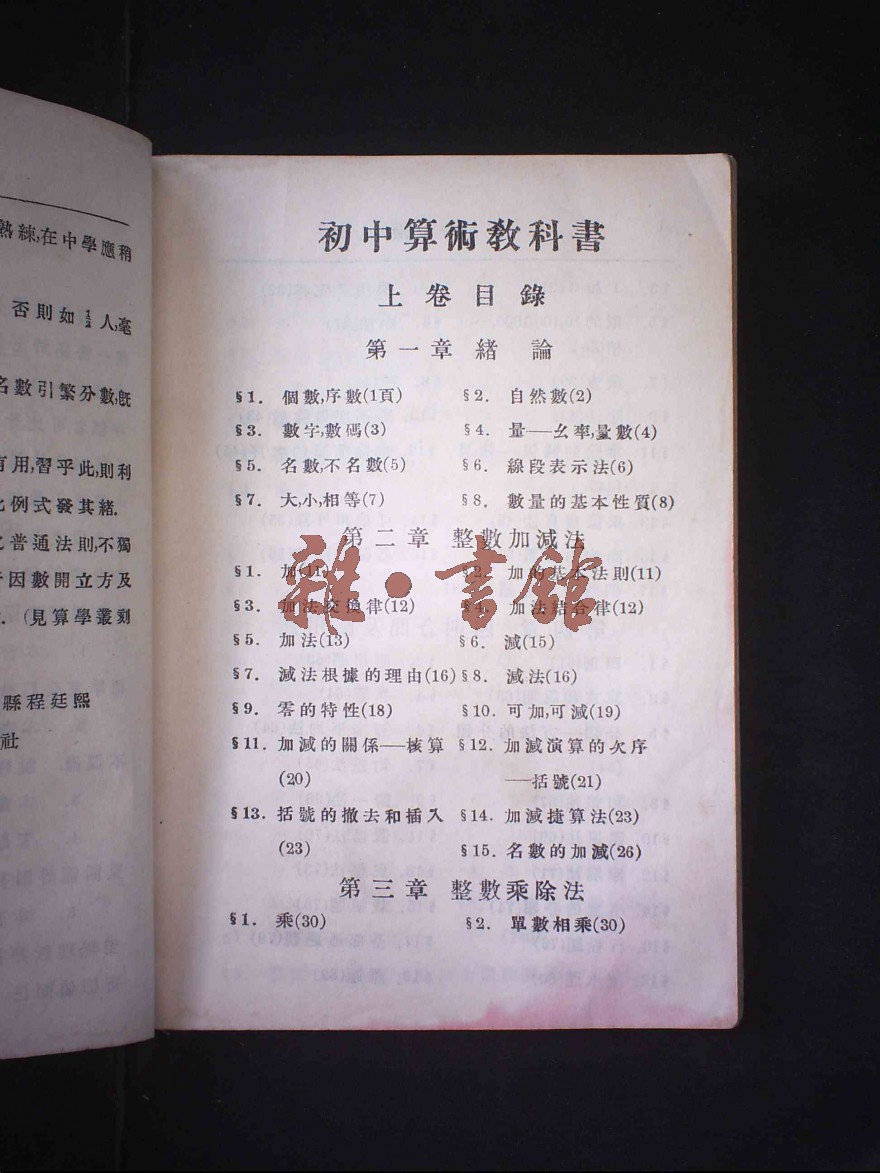 熟練,在中學應稍
否則如½人,毫
名數引繁分數,旣
有用,習乎此,則利
比例式發其緒.
之普通法則,不獨
行因數開立方及
. (見算學叢刻
縣程廷熙
社
初中算術教科書
上卷目錄
第一章 緒 論
§1. 個數,序數(1頁) §2. 自然數(2)
§3. 數字,數碼(3) §4. 量——幺率,量數(4)
§5. 名數,不名數(5) §6. 線段表示法(6)
§7. 大,小,相等(7) §8. 數量的基本性質(8)
第二章 整數加減法
§1. 加(11) §2. 加的基本法則(11)
§3. 加法交換律(12) §4. 加法結合律(12)
§5. 加法(13) §6. 減(15)
§7. 減法根據的理由(16) §8. 減法(16)
§9. 零的特性(18) §10. 可加,可減(19)
§11. 加減的關係——核算 §12. 加減演算的次序
(20) ——括號(21)
§13. 括號的撤去和插入 §14. 加減捷算法(23)
(23) §15. 名數的加減(26)
第三章 整數乘除法
§1. 乘(30) §2. 單數相乘(30)
雜·書館